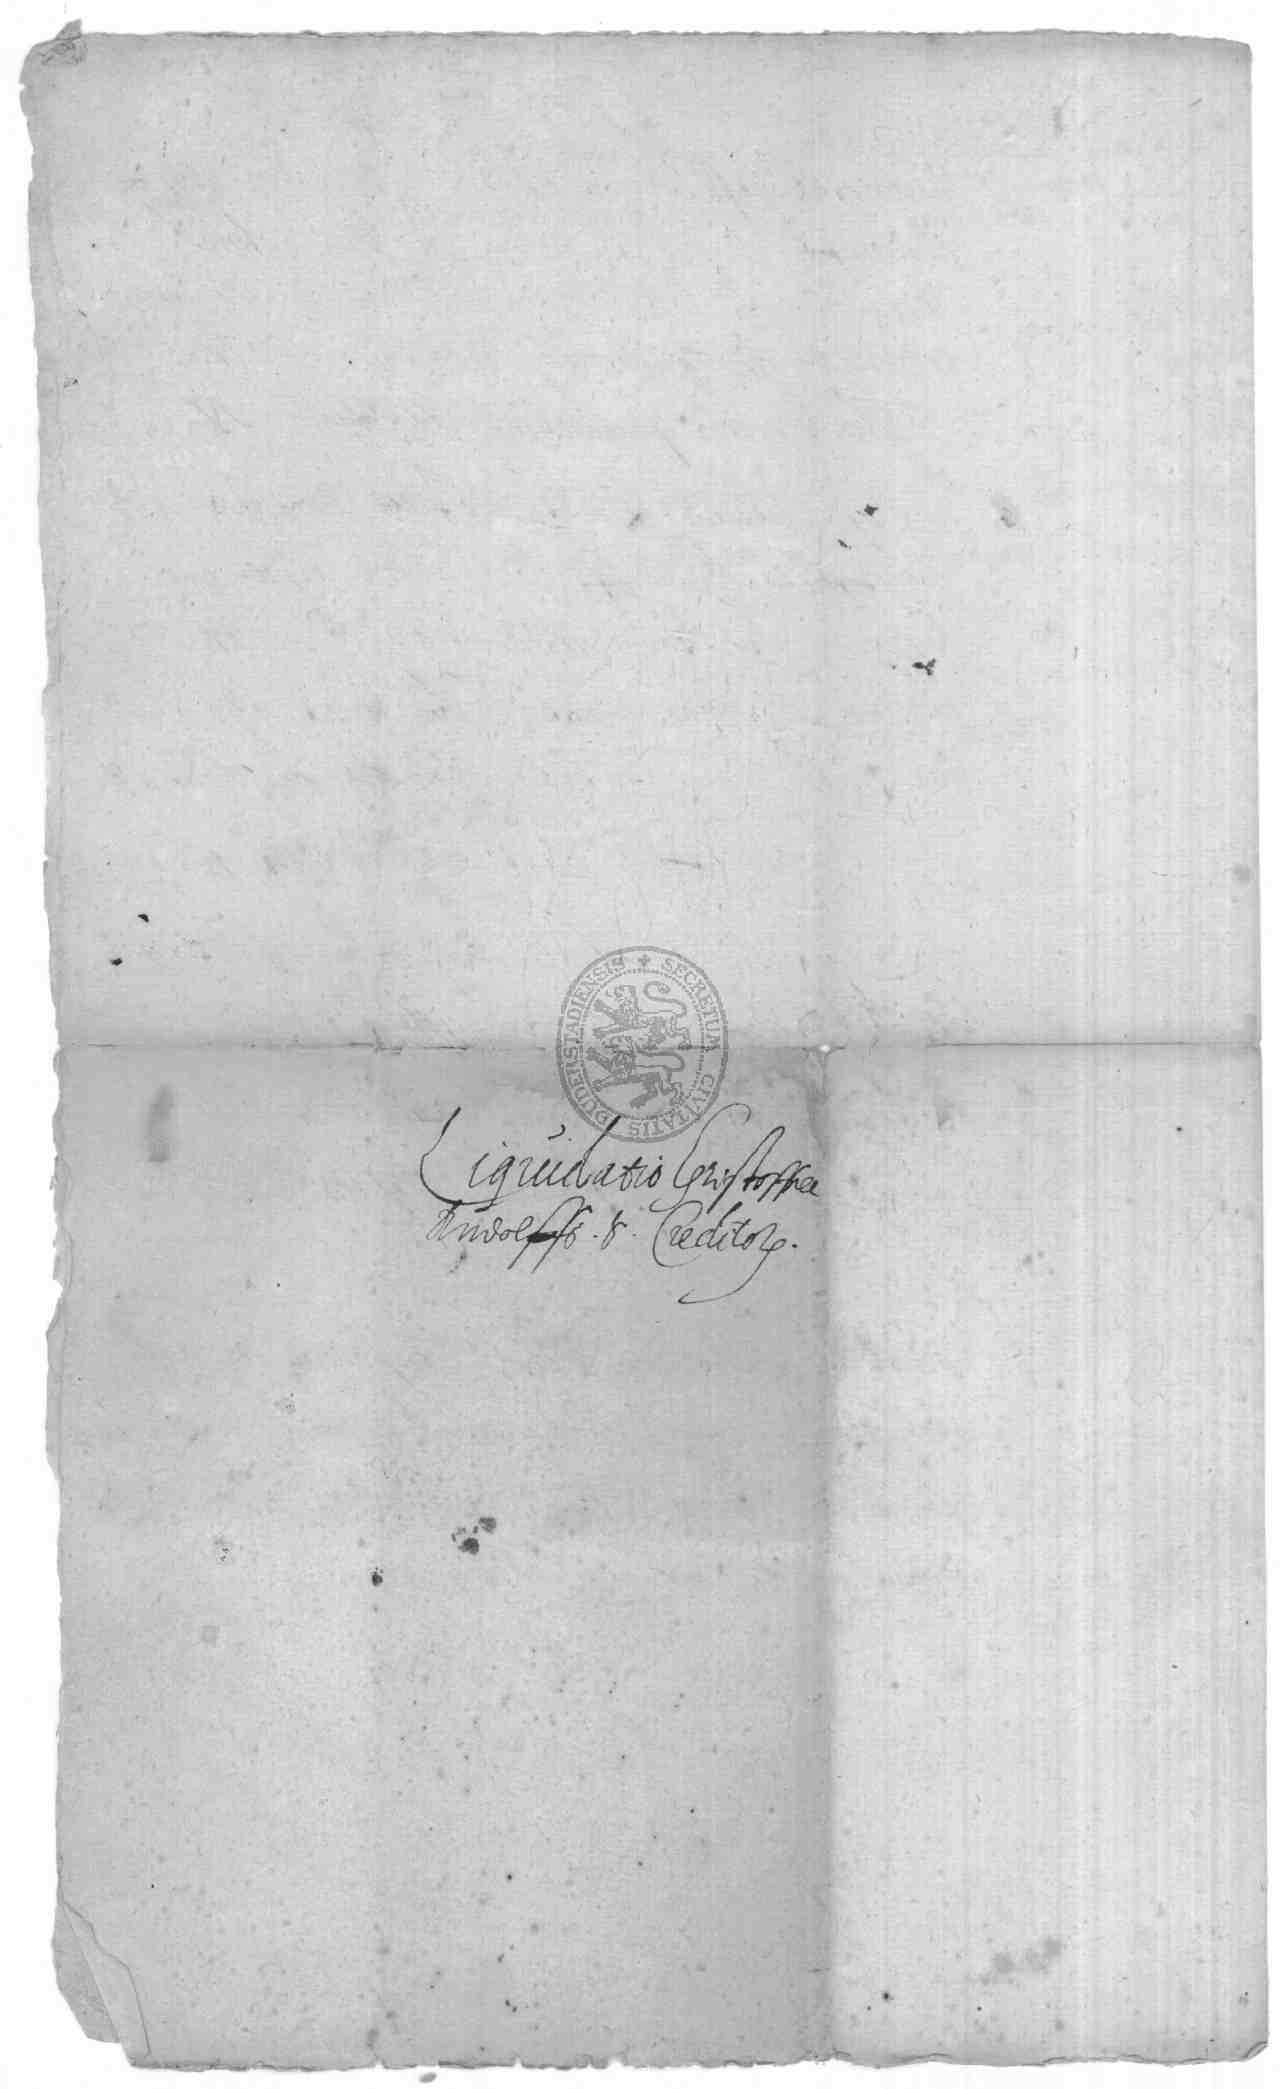 SECRETUM CIVITATIS DUDERSTADIENSIS
Liquidatio Cristoffel
Rudolffs . & . Creditor.